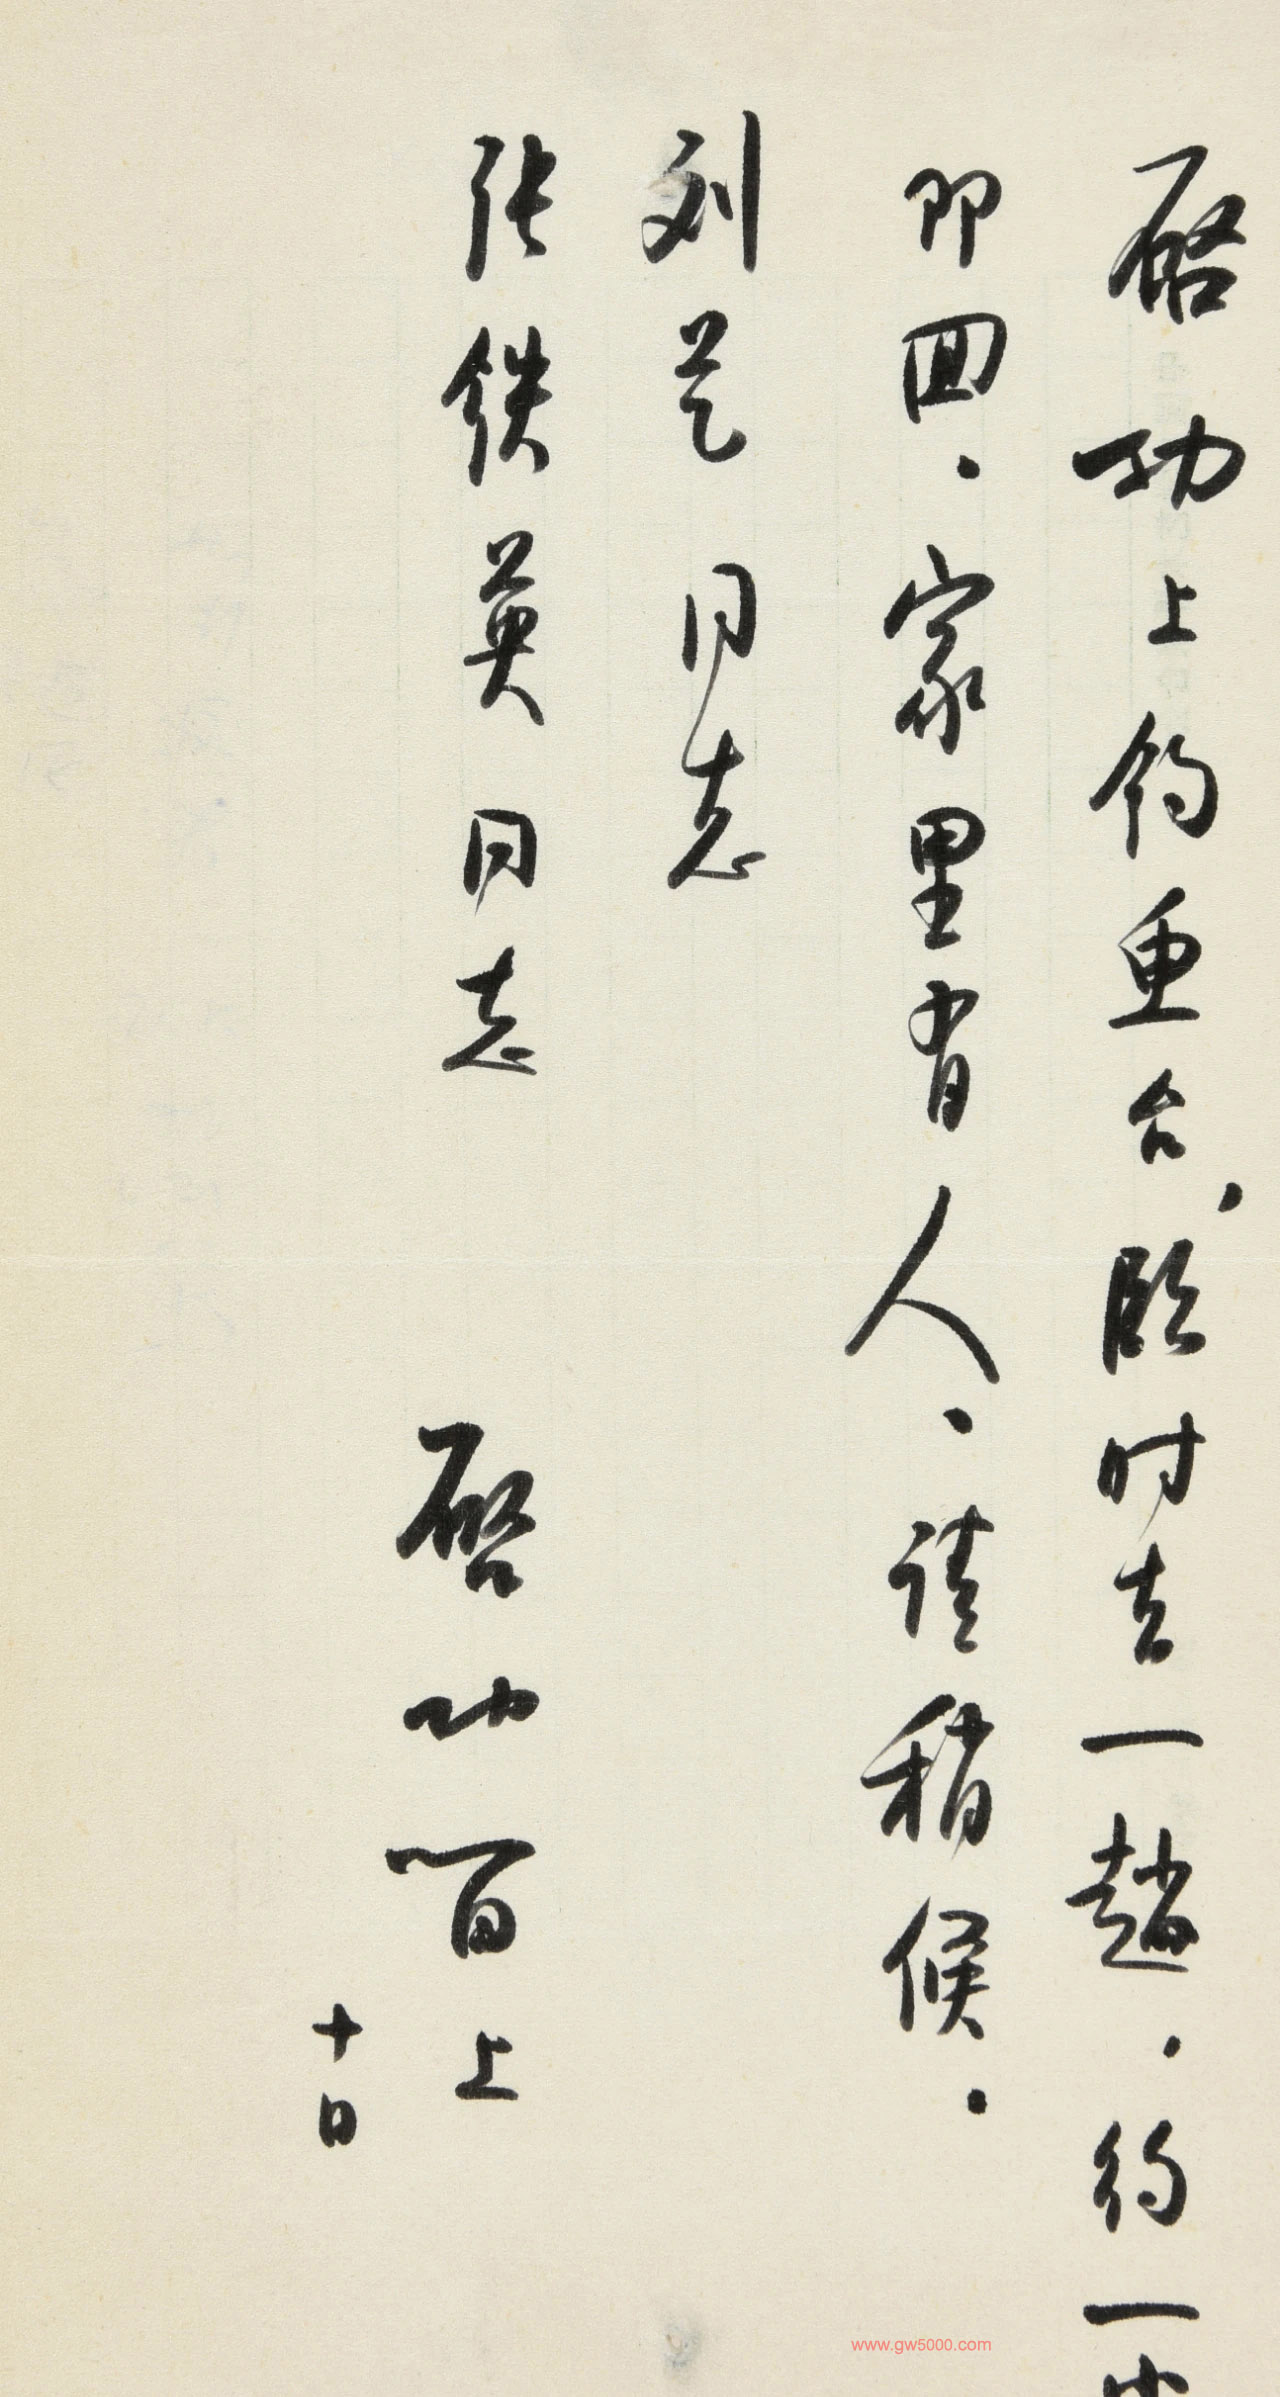 启功上钓鱼台，临时去一趟，约一小
即回，家里有人，请稍候。
刘芝同志
张铁英同志
启功百上
十日
www.gw5000.com